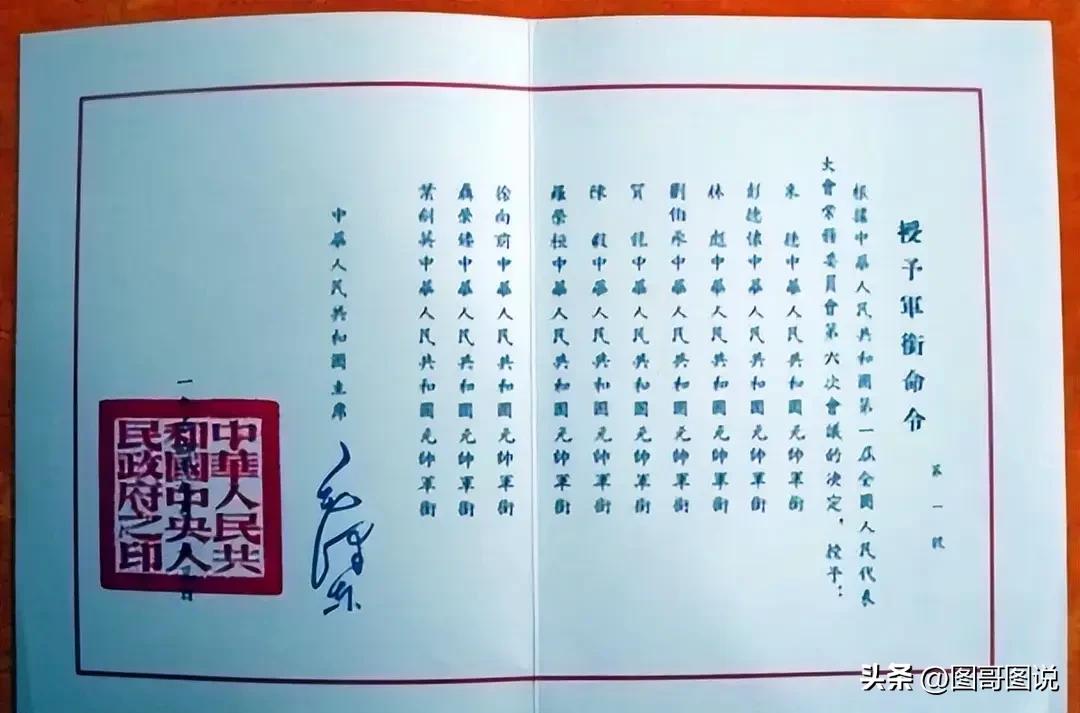 授予軍銜命令
第一號
根據中華人民共和國第一屆全國人民代表
大會常務委員會第六次會議的決定，授予：
朱德中華人民共和國元帥軍銜
彭德懷中華人民共和國元帥軍銜
林彪中華人民共和國元帥軍銜
劉伯承中華人民共和國元帥軍銜
賀龍中華人民共和國元帥軍銜
陳毅中華人民共和國元帥軍銜
羅榮桓中華人民共和國元帥軍銜
徐向前中華人民共和國元帥軍銜
聶榮臻中華人民共和國元帥軍銜
葉劍英中華人民共和國元帥軍銜
中華人民共和國主席
毛澤東
中華人民共
和國中央人
民政府之印
头条 @图哥图说